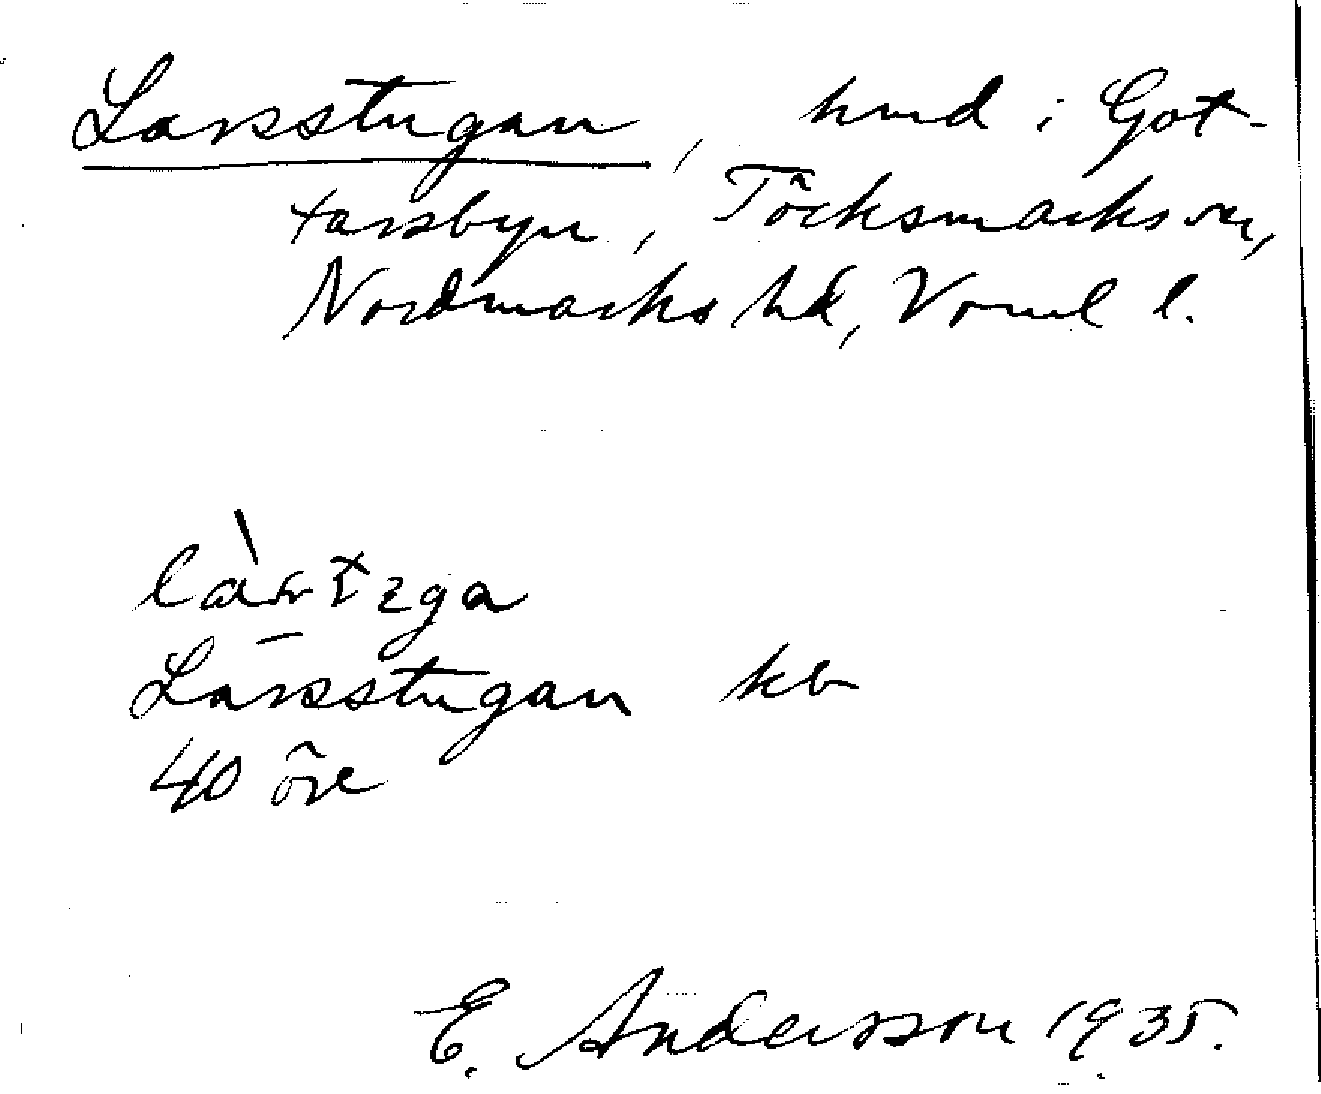 Larsstugan, hmd i Got-
tarsbyn, Töcksmarks sn,
Nordmarks hd, Verml l.
Larsstugan kb
40 öre
E. Andersson 1935.